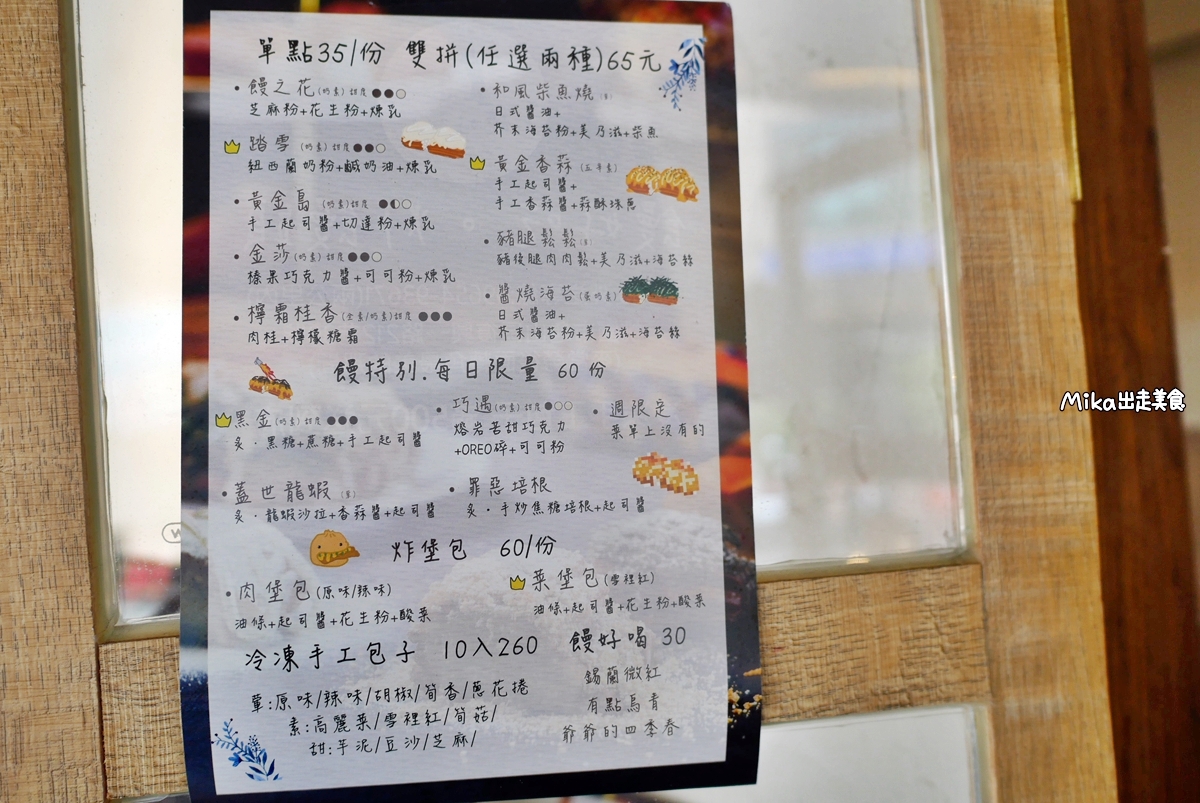 單點35/份 雙拼(任選兩種)65元
饅之花(奶素)甜度●●○
芝麻粉+花生粉+煉乳
踏雪(奶素)甜度●●○
紐西蘭奶粉+鹹奶油+煉乳
黃金島(奶素)甜度●◐○
手工起司醬+切達粉+煉乳
金莎(奶素)甜度●●○
榛果巧克力醬+可可粉+煉乳
檸霜桂香(全素/奶素)甜度●●●
肉桂+檸檬糖霜
和風柴魚燒(葷)
日式醬油+
芥末海苔粉+美乃滋+柴魚
黃金香蒜(五辛素)
手工起司醬+
手工香蒜醬+蒜酥珠蔥
豬腿鬆鬆(葷)
豬後腿肉肉鬆+美乃滋+海苔絲
醬燒海苔(蛋奶素)
日式醬油+
芥末海苔粉+美乃滋+海苔絲
饅特別.每日限量 60份
黑金(奶素)甜度●●●
炙·黑糖+蔗糖+手工起司醬
巧遇(奶素)甜度●○○
熔岩苦甜巧克力
+OREO碎+可可粉
週限定
菜單上沒有的
蓋世龍蝦(葷)
炙·龍蝦沙拉+香蒜醬+起司醬
罪惡培根
炙·手炒焦糖培根+起司醬
炸堡包 60/份
肉堡包(原味/辣味)
油條+起司醬+花生粉+酸菜
菜堡包(雪裡紅)
油條+起司醬+花生粉+酸菜
冷凍手工包子 10入260
葷:原味/辣味/胡椒/筍香/蔥花捲
素:高麗菜/雪裡紅/筍菇/
甜:芋泥/豆沙/芝麻/
饅好喝 30
錫蘭微紅
有點烏青
爺爺的四季春
Mika出走美食